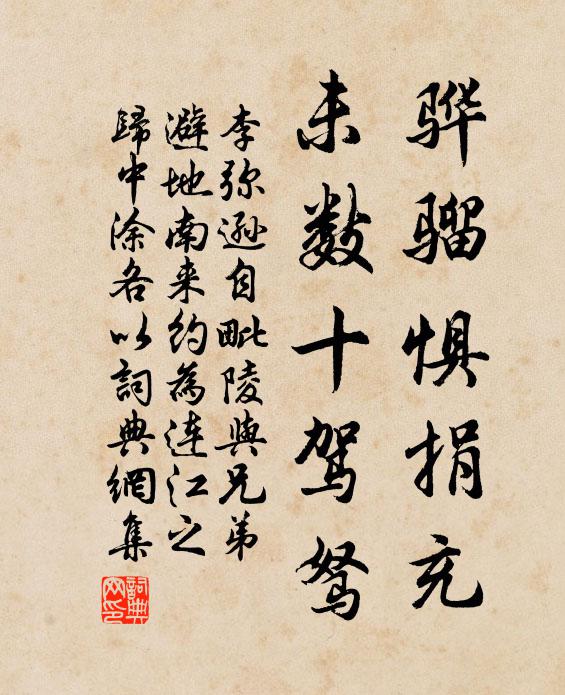 骅骝惧捐充
未数十驾驽
李弥逊自毗陵與兄弟
避地南来约為连江之
歸中涂各以詞典網集
詞典网印